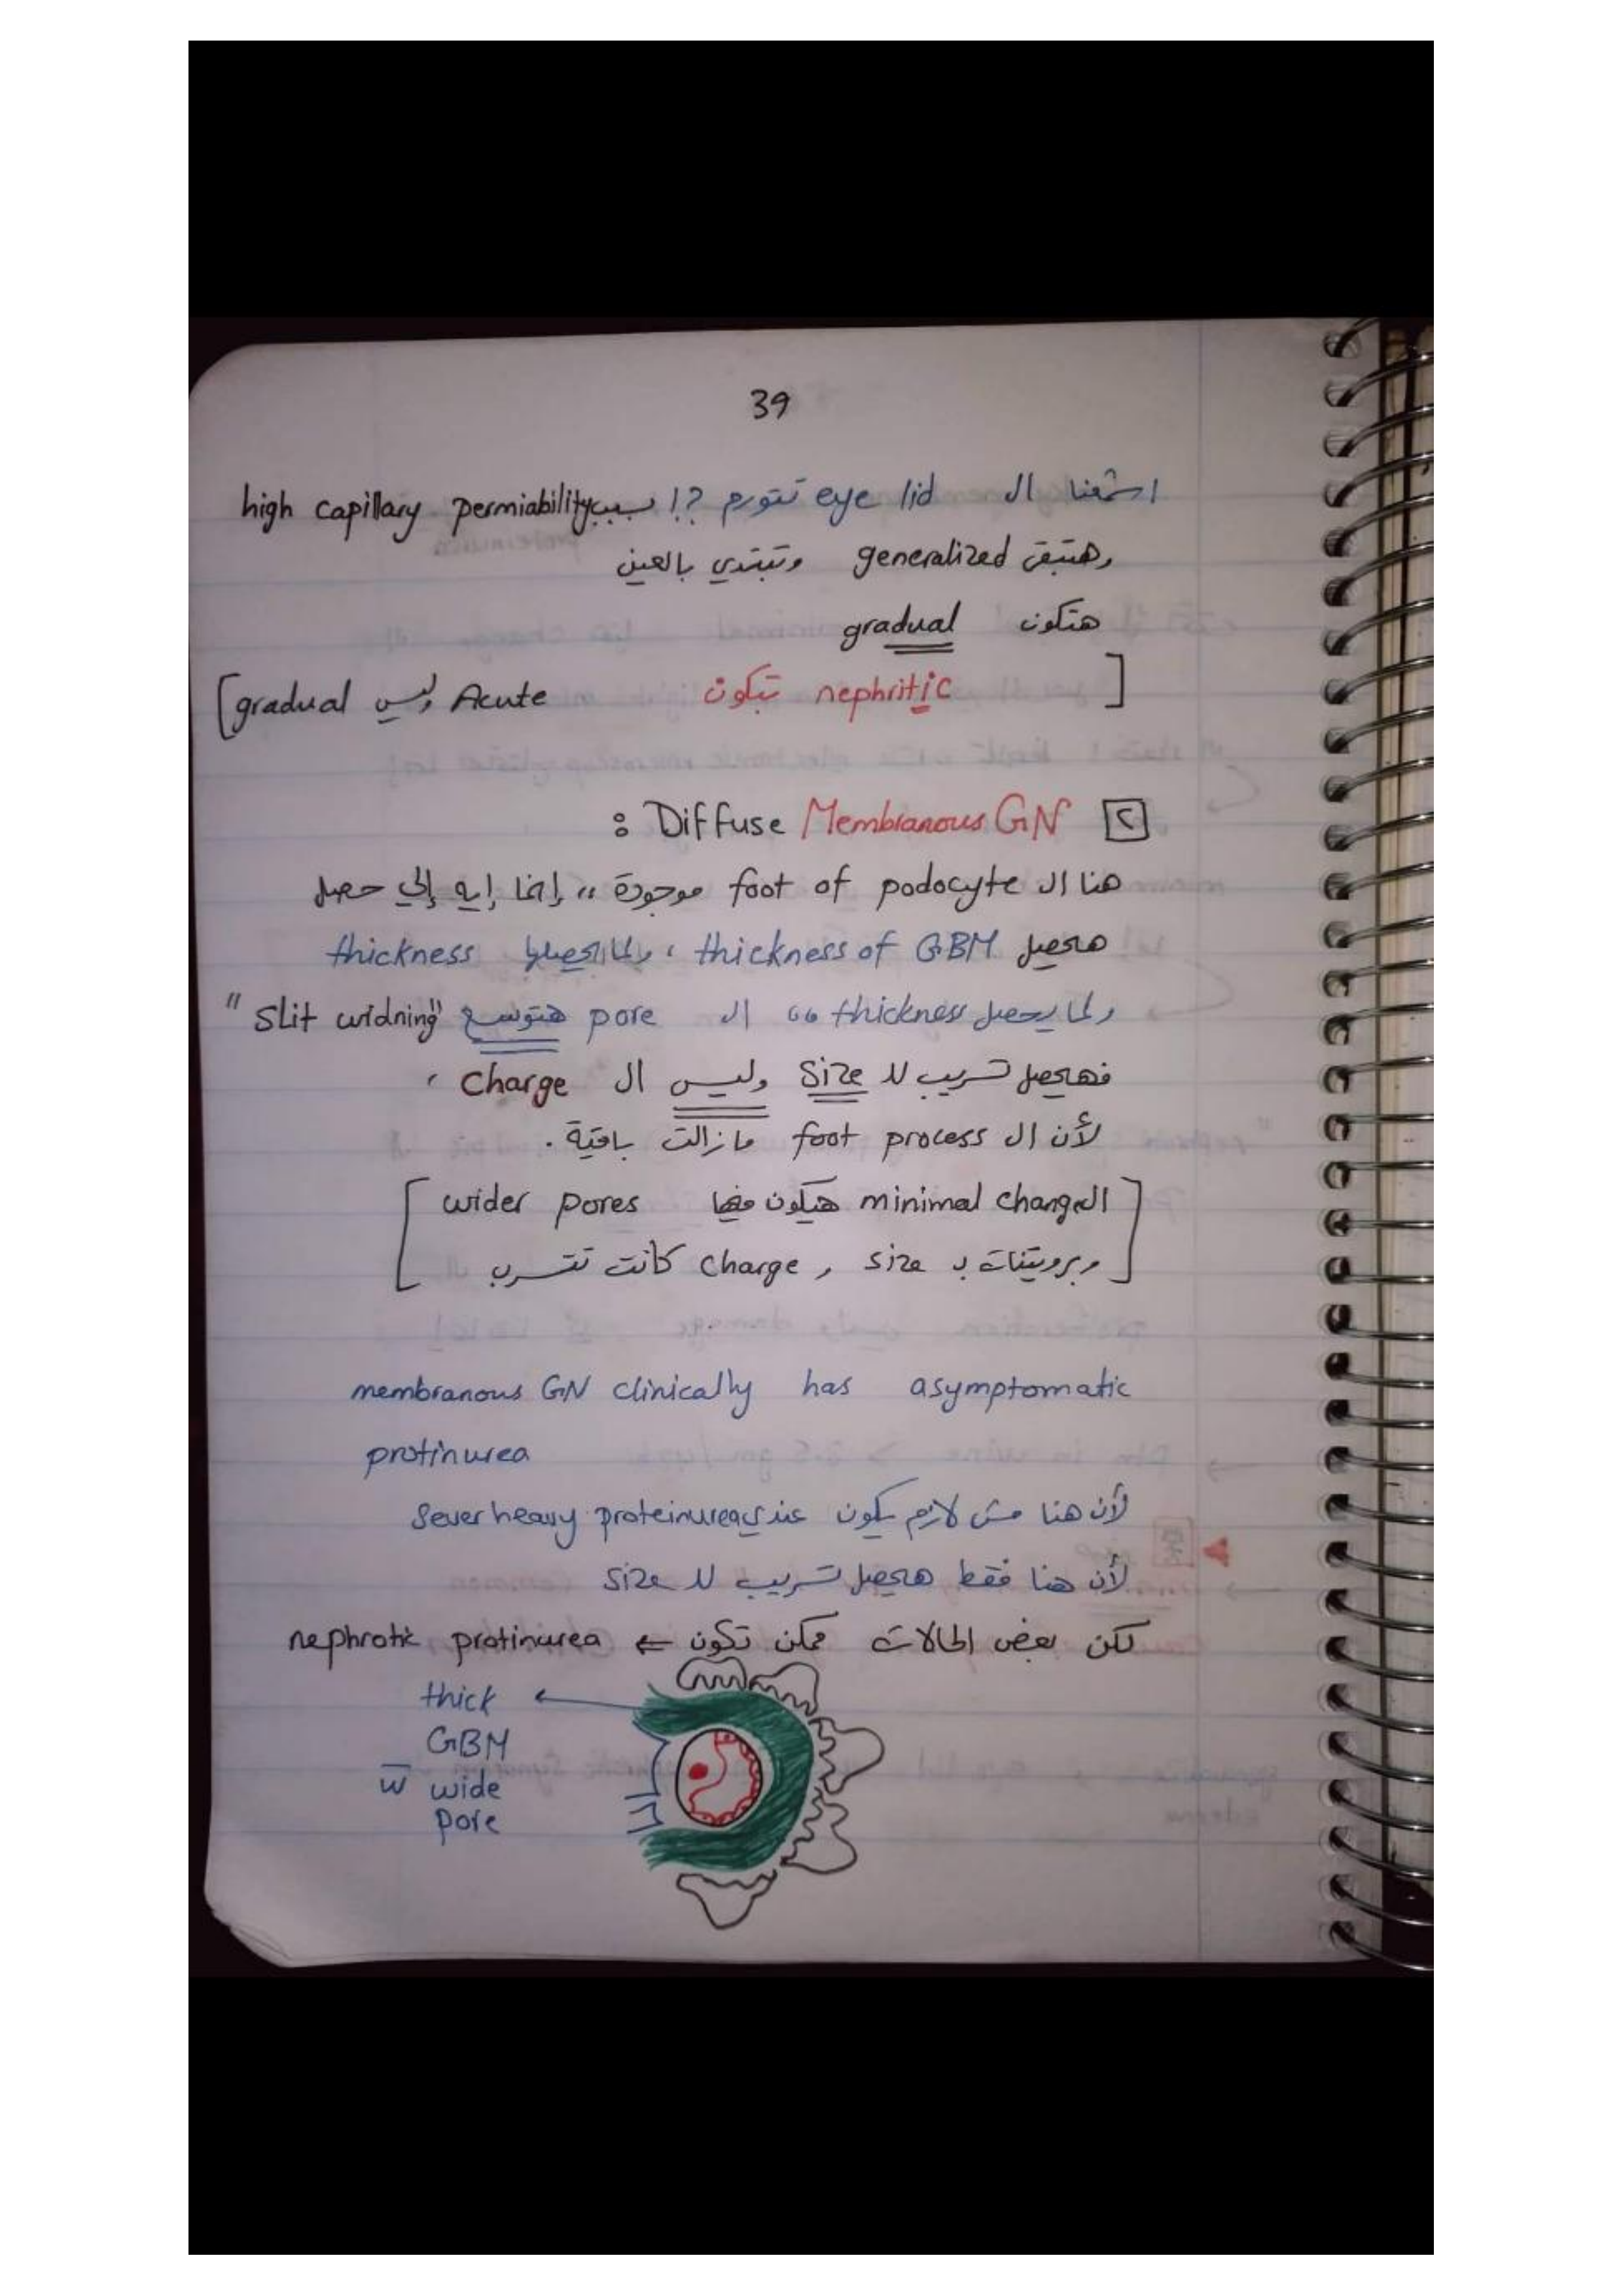 39
اشمعنا ال eye lid تتورم ?! بسبب high capillary permiability
وهتبقى generalized وتبتدي بالعين
هتكون gradual
[ nephritic تبكون Acute وليس gradual ]
[2] Diffuse Membranous GN :
هنا ال foot of podocyte موجودة ,, إنما إيه إلي حصل
هيحصل thickness of GBM ، ولما يحصلها thickness
ولما يحصل thickness ال pore هتوسع "slit widning"
فهيحصل تسريب لل size وليس ال charge ،
لأن ال foot process مازالت باقية .
[ ال minimal change هيكون فيها wider pores
وبروتينات ب size , charge كانت تتسرب ]
membranous GN clinically has asymptomatic
protinurea
لأن هنا مش لازم يكون عندي sever heavy proteinurea
لأن هنا فقط هيحصل تسريب لل size
لكن بعض الحالات ممكن تكون ⇐ nephrotic protinurea
thick
GBM
w̅ wide
pore